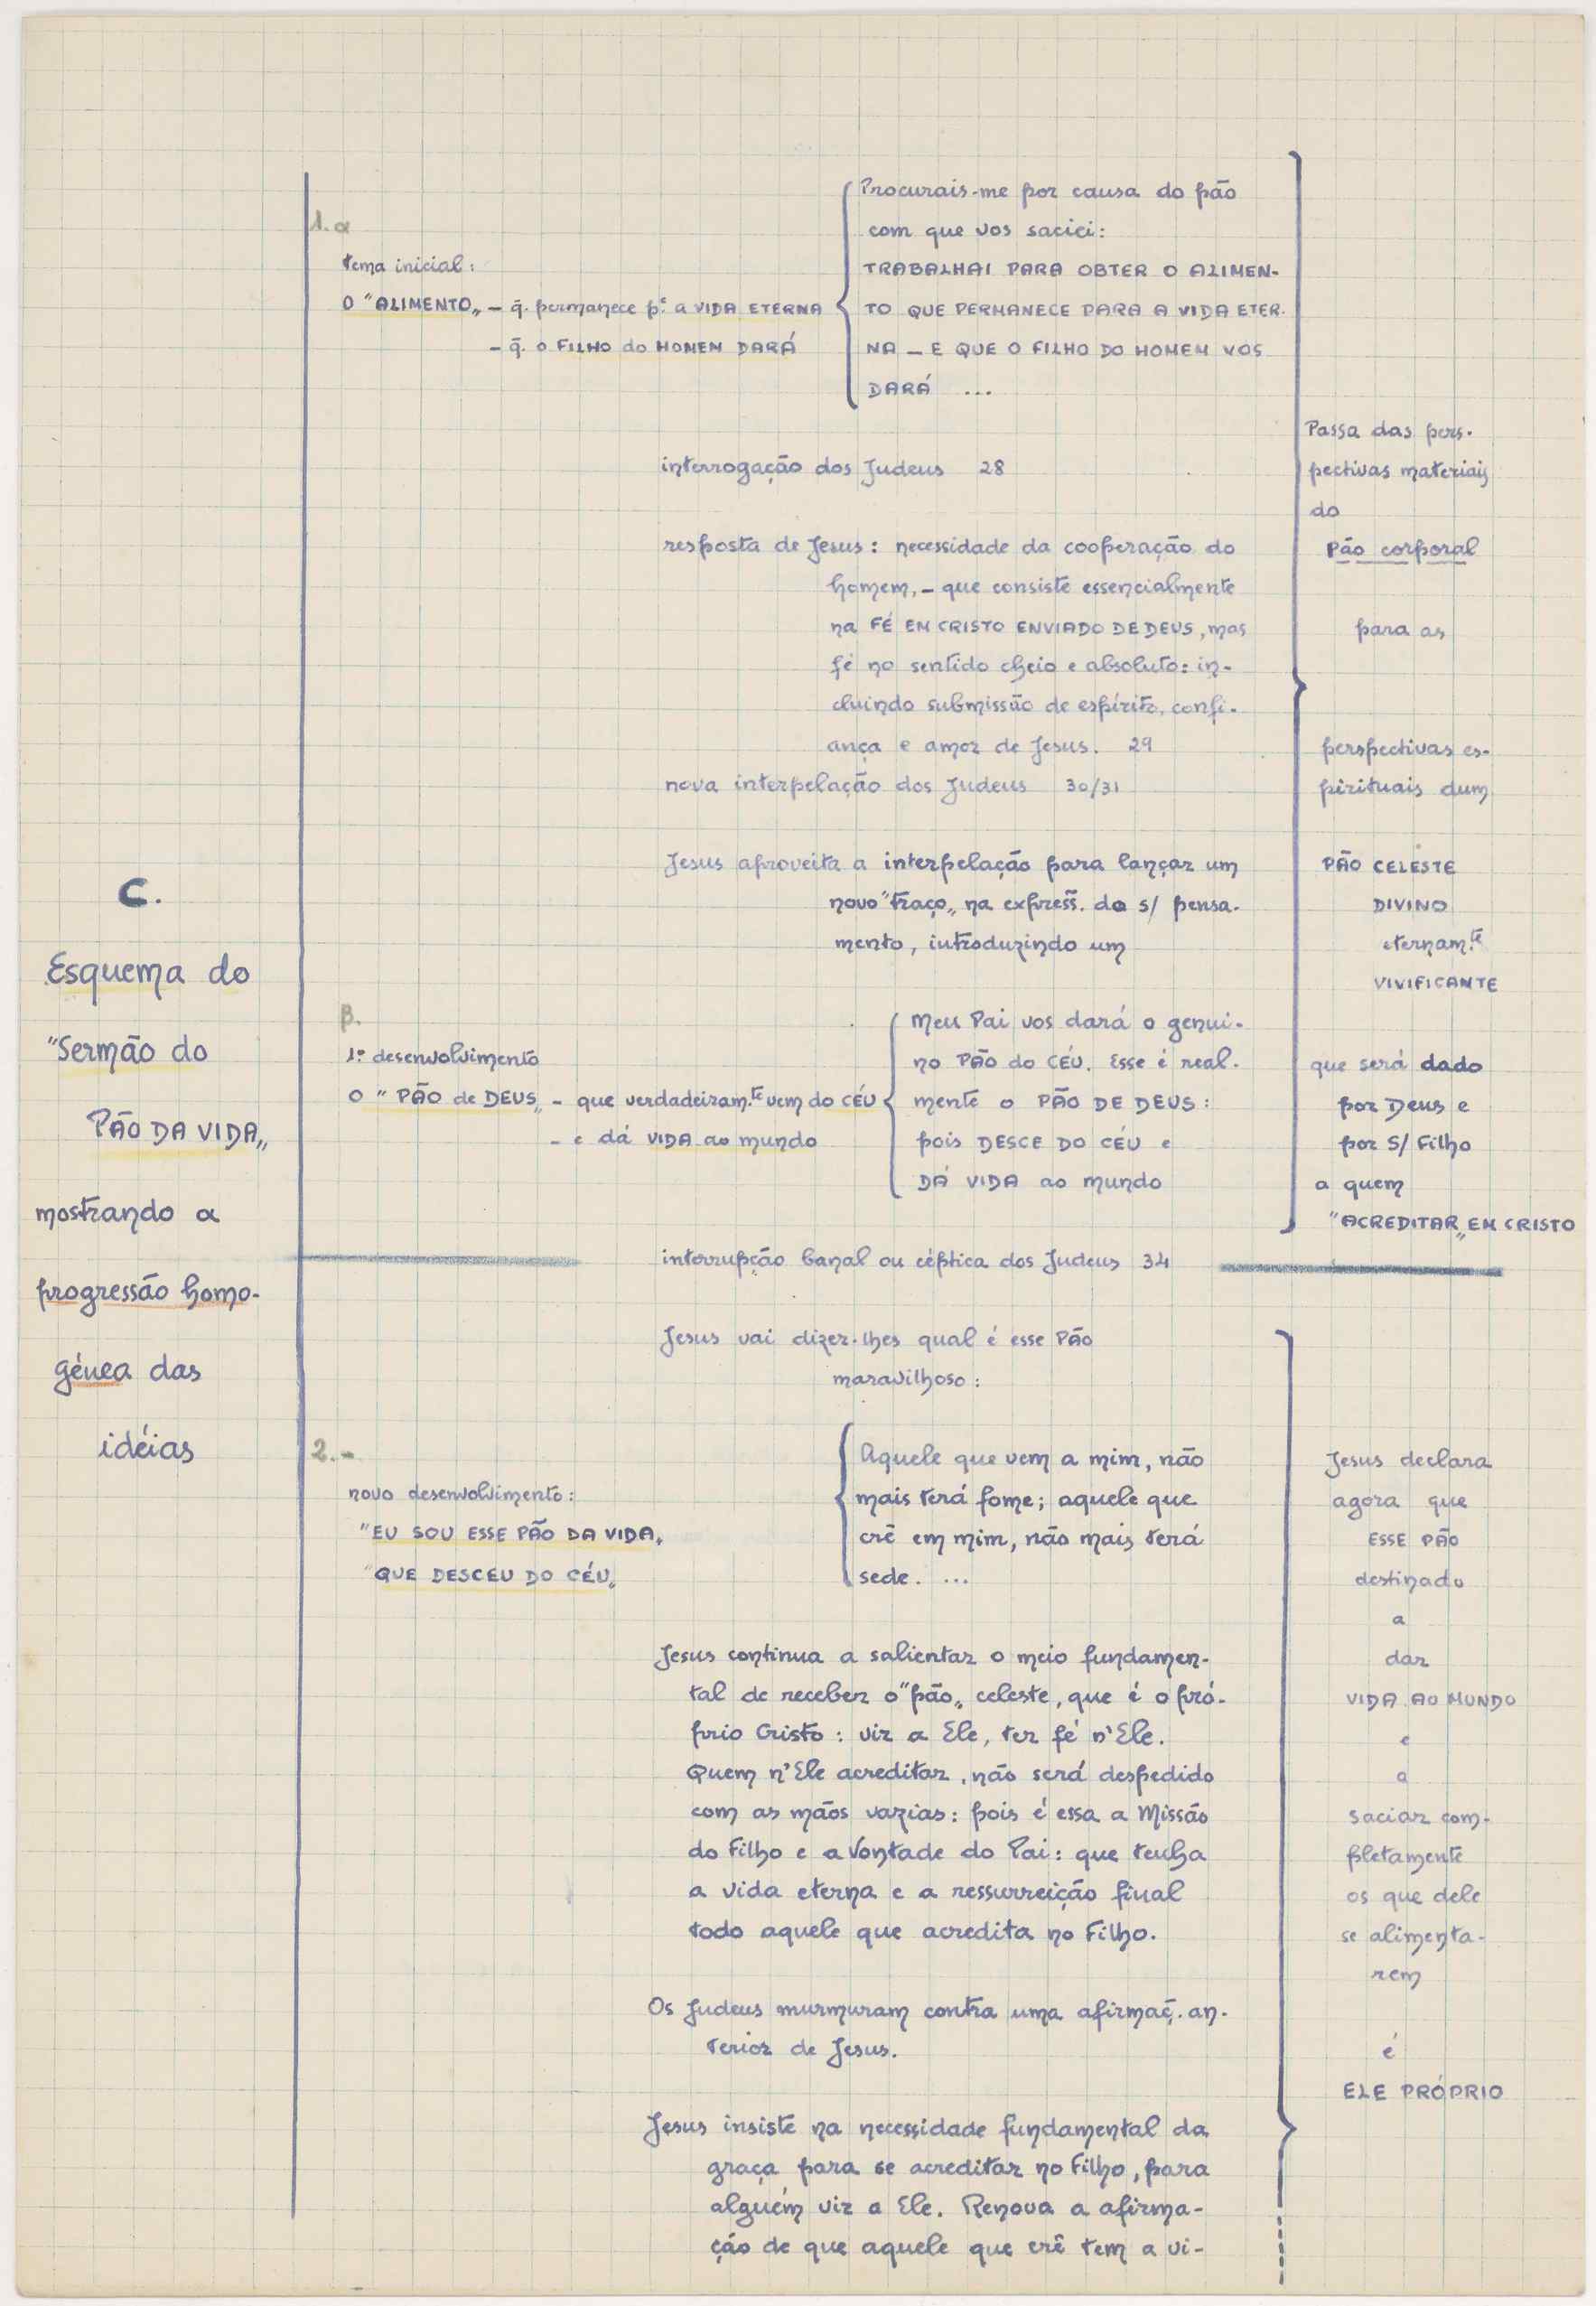 C.
Esquema do
"Sermão do
PÃO DA VIDA„
mostrando a
progressão homo-
génea das
idéias
1. α
tema inicial:
O "ALIMENTO„ – q̃. permanece pª a VIDA ETERNA
– q̃. o FILHO do HOMEM DARÁ
Procurais-me por causa do pão
com que vos saciei:
TRABALHAI PARA OBTER O ALIMEN-
TO QUE PERMANECE PARA A VIDA ETER-
NA – E QUE O FILHO DO HOMEM VOS
DARÁ ...
interrogação dos Judeus 28
resposta de Jesus: necessidade da cooperação do
homem, – que consiste essencialmente
na FÉ EM CRISTO ENVIADO DE DEUS, mas
fé no sentido cheio e absoluto: in-
cluindo submissão de espírito, confi-
ança e amor de Jesus. 29
nova interpelação dos Judeus 30/31
Jesus aproveita a interpelação para lançar um
novo "traço„ na express̃. do s/ pensa-
mento, introduzindo um
β.
1º desenvolvimento
O "PÃO de DEUS„ – que verdadeiram.te vem do CÉU
– e dá VIDA ao mundo
Meu Pai vos dará o genui-
no PÃO do CÉU. Esse é real-
mente o PÃO DE DEUS:
pois DESCE DO CÉU e
DÁ VIDA ao mundo
Passa das pers-
pectivas materiais
do
Pão corporal
para as
perspectivas es-
pirituais dum
PÃO CELESTE
DIVINO
eternam.te
VIVIFICANTE
que será dado
por Deus e
por S/ Filho
a quem
"ACREDITAR„ EM CRISTO
interrupção banal ou céptica dos Judeus 34
Jesus vai dizer-lhes qual é esse PÃO
maravilhoso:
2. –
novo desenvolvimento:
"EU SOU ESSE PÃO DA VIDA„
"QUE DESCEU DO CÉU„
Aquele que vem a mim, não
mais terá fome; aquele que
crê em mim, não mais terá
sede. ...
Jesus continua a salientar o meio fundamen-
tal de receber o "pão„ celeste, que é o pró-
prio Cristo: vir a Ele, ter fé n'Ele.
Quem n'Ele acreditar, não será despedido
com as mãos vazias: pois é essa a Missão
do Filho e a Vontade do Pai: que tenha
a vida eterna e a ressurreição final
todo aquele que acredita no Filho.
Os Judeus murmuram contra uma afirmaç̃. an-
terior de Jesus.
Jesus insiste na necessidade fundamental da
graça para se acreditar no Filho, para
alguém vir a Ele. Renova a afirma-
ção de que aquele que crê tem a vi-
Jesus declara
agora que
ESSE PÃO
destinado
a
dar
VIDA AO MUNDO
e
a
saciar com-
pletamente
os que dele
se alimenta-
rem
é
ELE PRÓPRIO